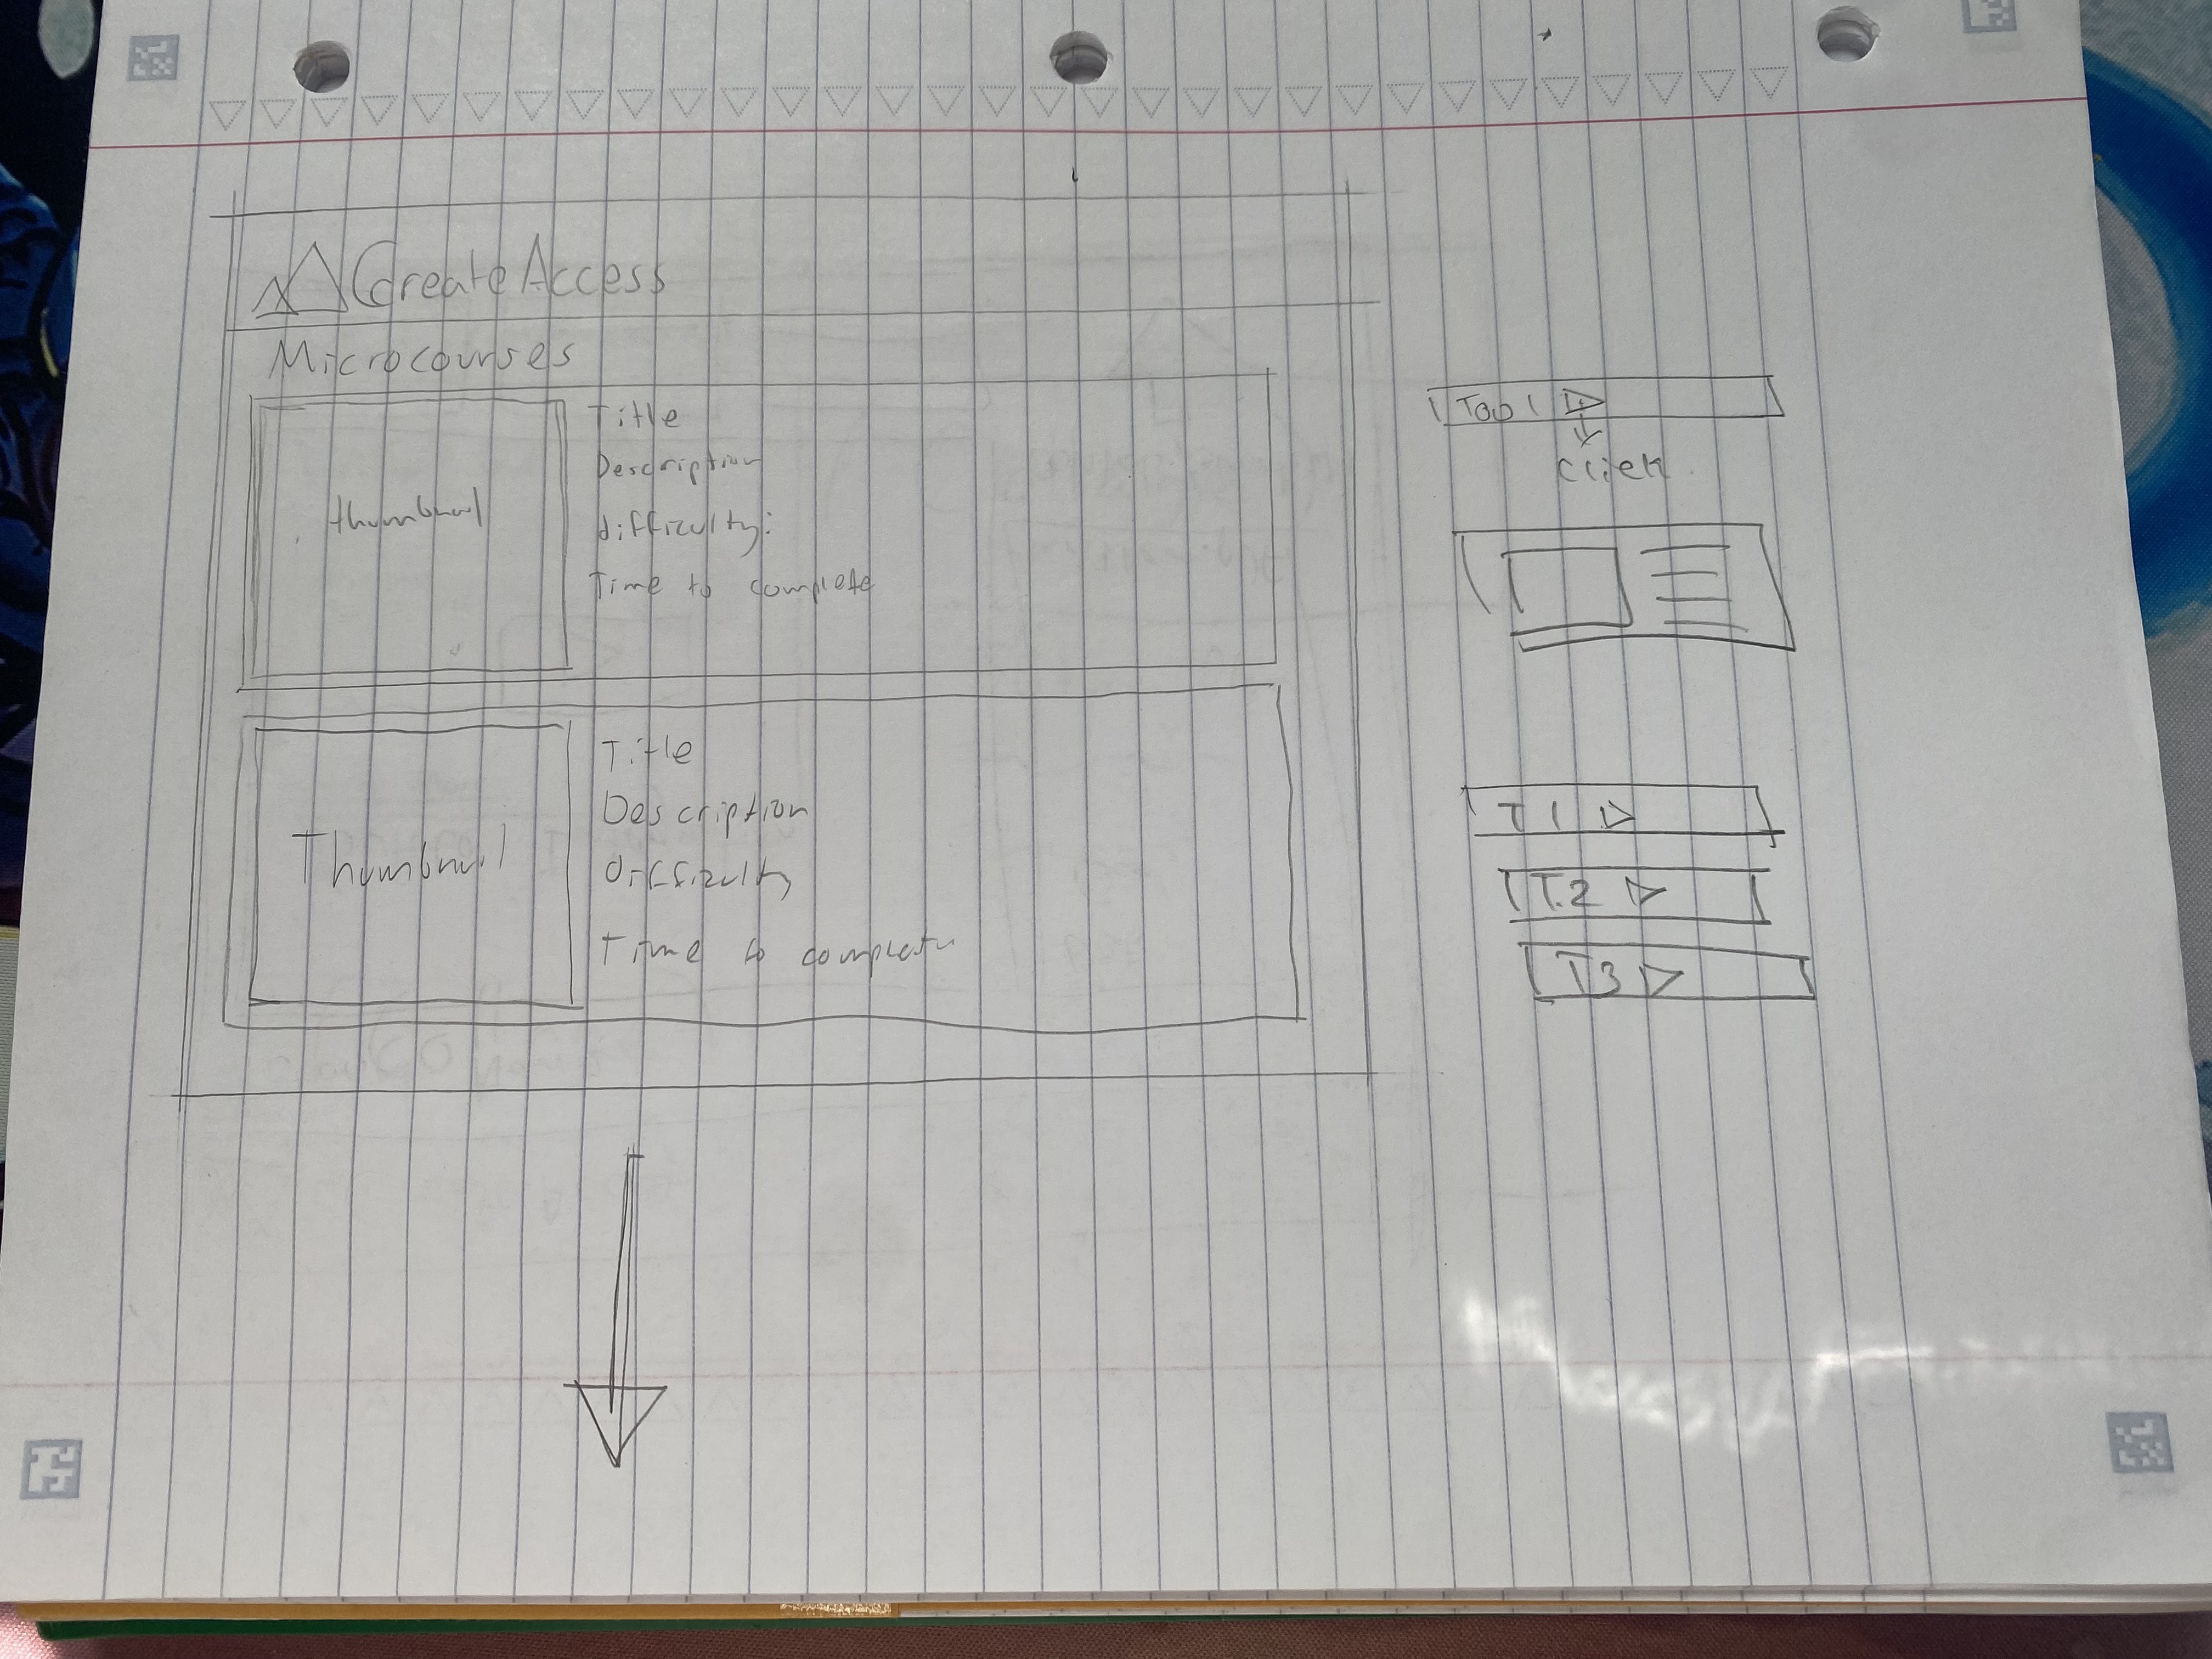 CreateAccess
Microcourses
thumbnail
Title
Description
difficulty:
Time to complete
Thumbnail
Title
Description
difficulty
Time to complete
Tool
click
T1
T2
T3